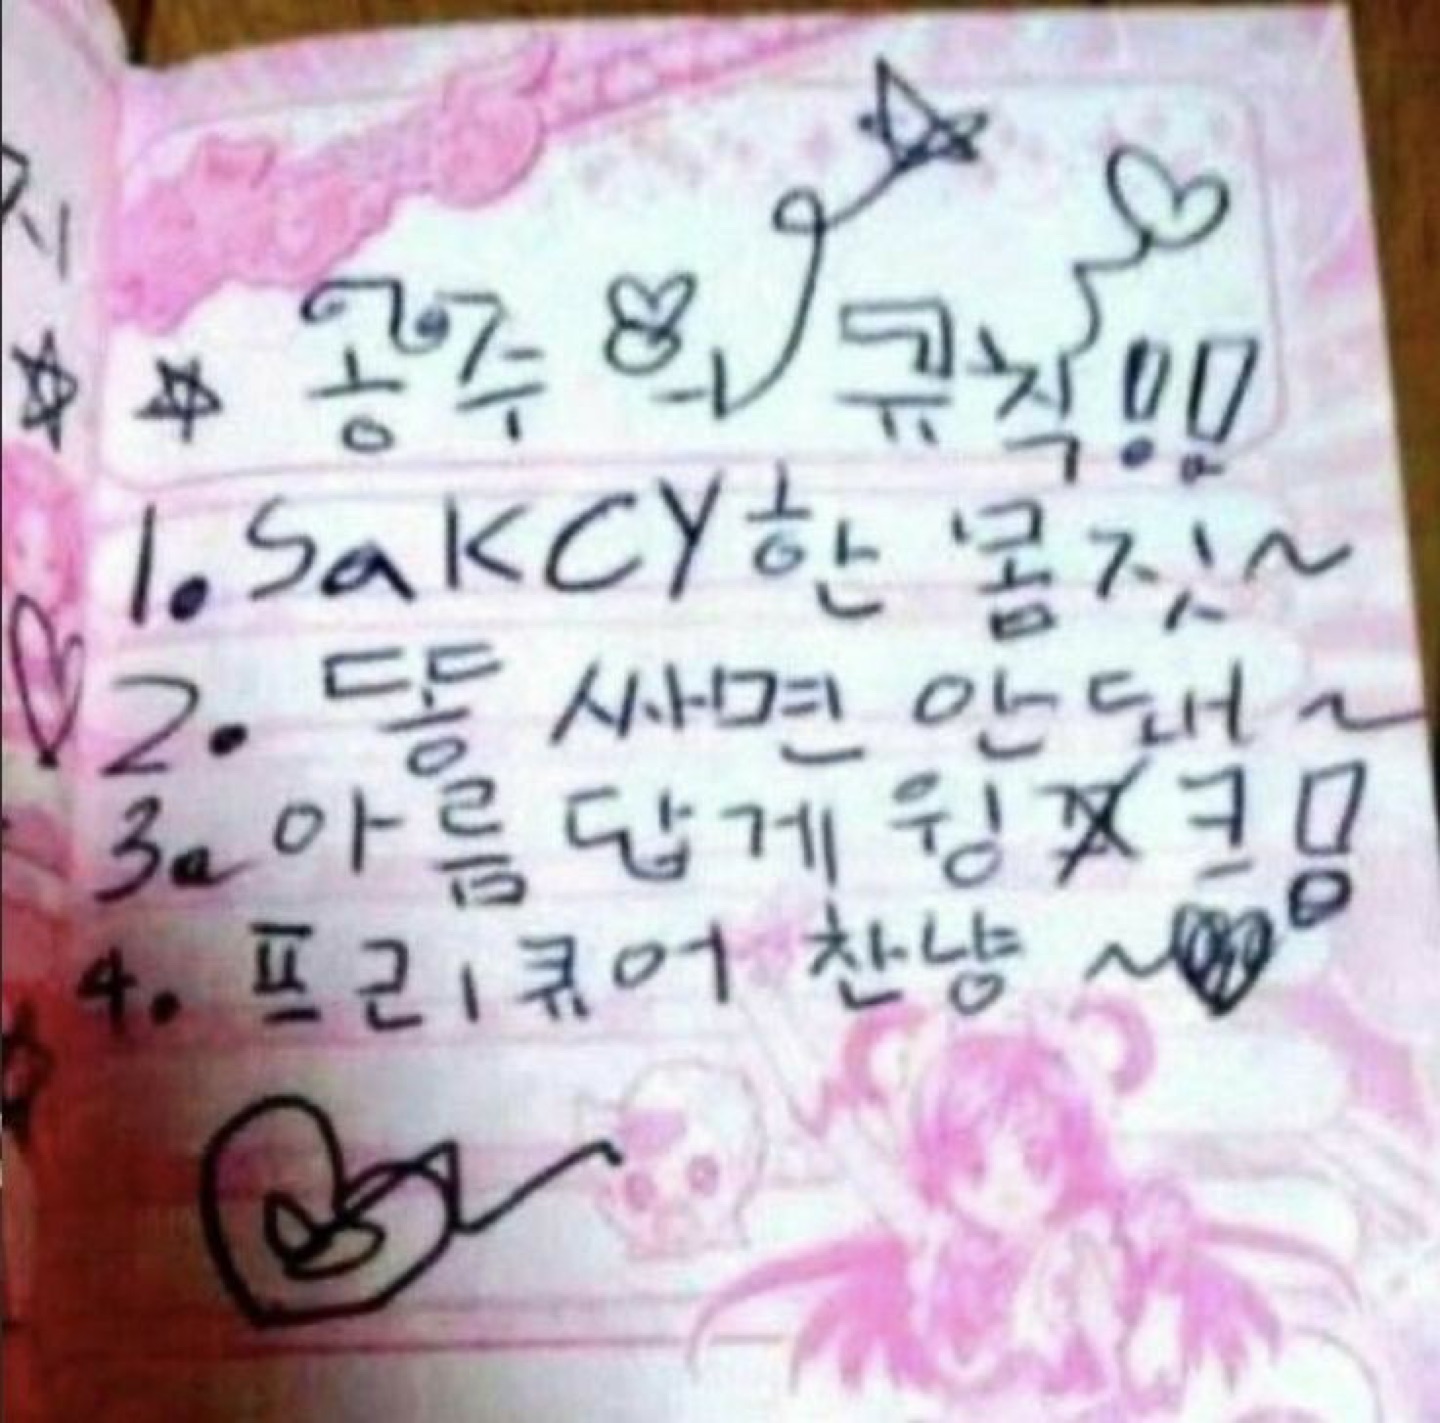 공주의 규칙!!
1. SaKCY한 몸짓~
2. 똥 싸면 안돼~
3. 아름답게 윙크!
4. 프리큐어 찬냥~